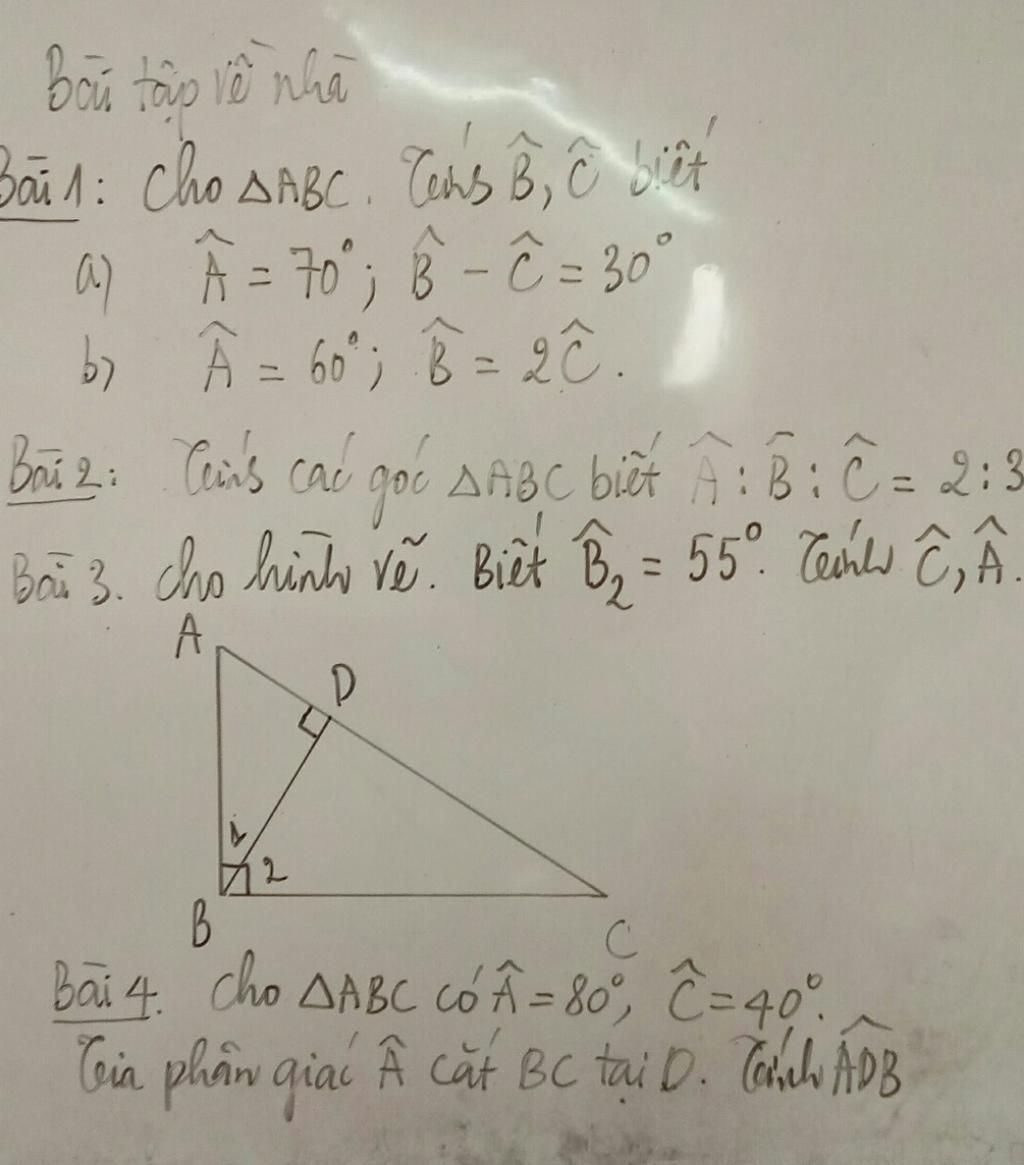 Bài tập về nhà
Bài 1: Cho ΔABC. Tính B̂, Ĉ biết
a) Â = 70°; B̂ - Ĉ = 30°
b) Â = 60°; B̂ = 2Ĉ.
Bài 2: Tính các góc ΔABC biết Â : B̂ : Ĉ = 2 : 3
Bài 3. Cho hình vẽ. Biết B̂₂ = 55°. Tính Ĉ, Â.
A
D
1
2
B
C
Bài 4. Cho ΔABC có Â = 80°, Ĉ = 40°.
Tia phân giác Â cắt BC tại D. Tính ÂDB